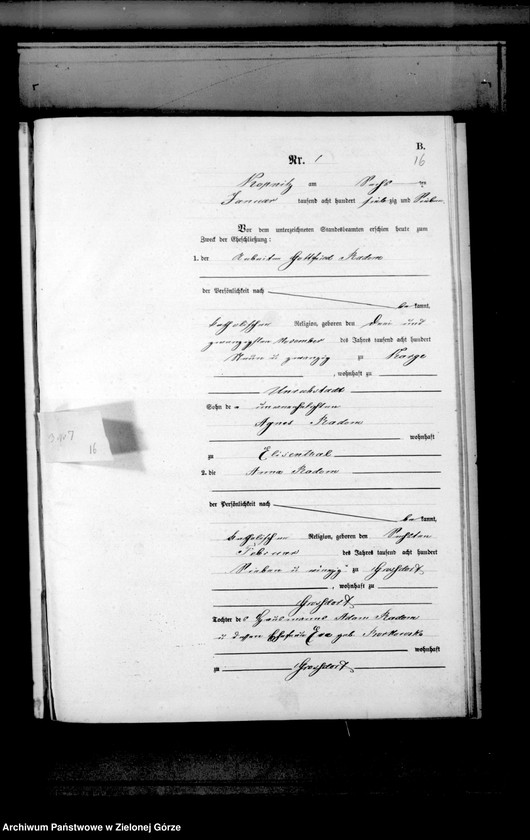 B.
Nr. 1
16
Kopnitz am Sechs ten
Januar tausend acht hundert siebzig und Sieben
Vor dem unterzeichneten Standesbeamten erschien heute zum
Zweck der Eheschließung:
1. der Arbeiter Gottfried Radom
der Persönlichkeit nach
be kannt,
katholischer Religion, geboren den Drei und
zwanzigsten November des Jahres tausend acht hundert
Neun u zwanzig zu Karge
, wohnhaft zu
Unruhstadt
Sohn der unverehelichten
Agnes Radom
wohnhaft
zu Elisenthal
2. die Anna Radom
der Persönlichkeit nach
be kannt,
katholischer Religion, geboren den Sechsten
Februar des Jahres tausend acht hundert
Sieben u zu Großdorf
, wohnhaft zu
Großdorf
Tochter des Adam Radom
u dessen Ehefrau Eva geb.
wohnhaft
zu Großdorf
16
Archiwum Państwowe w Zielonej Górze